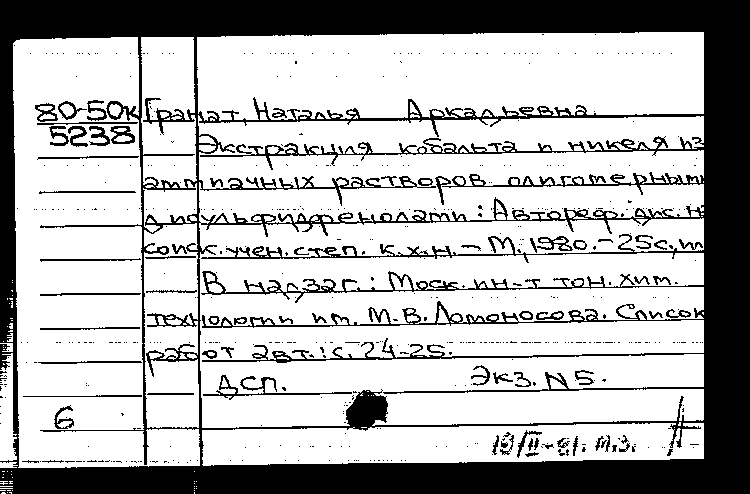 80-50к Гранат, Наталья Аркадьевна.
5238
Экстракция кобальта и никеля из
аммиачных растворов олигомерными
дисульфидфенолами: Автореф. дис. н
соиск. учен. степ. к.х.н. - М., 1980. - 25с,
В надзаг.: Моск. ин-т тон. хим.
технологии им. М.В. Ломоносова. Список
работ авт.: с. 24-25.
ДСП. Экз. N 5.
6
19/II-81. м.з.